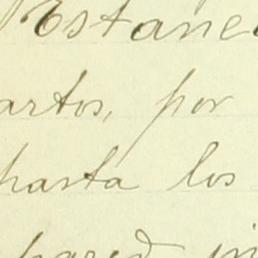 Estane
artos, por
hasta los
pared in